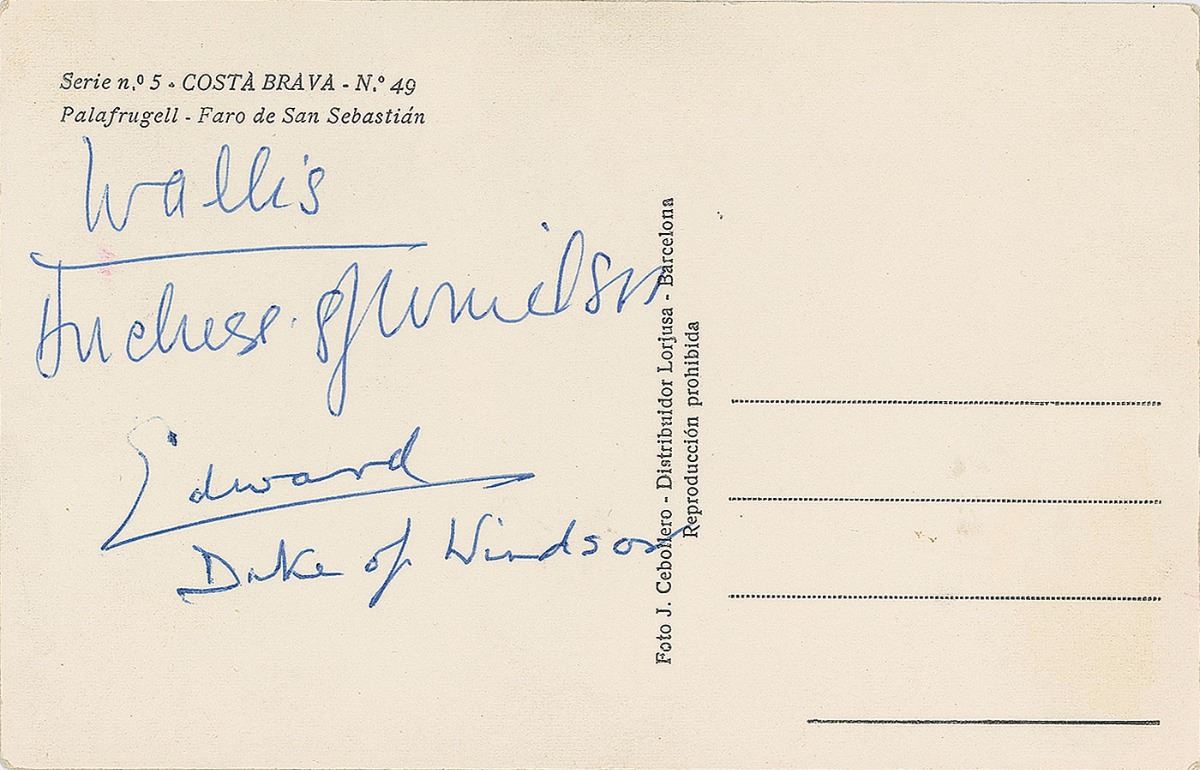 Serie n.º 5 - COSTA BRAVA - N.º 49
Palafrugell - Faro de San Sebastián
Wallis
Duchess of Windsor
Edward
Duke of Windsor
Foto J. Cebollero - Distribuidor Lorjusa - Barcelona
Reproducción prohibida